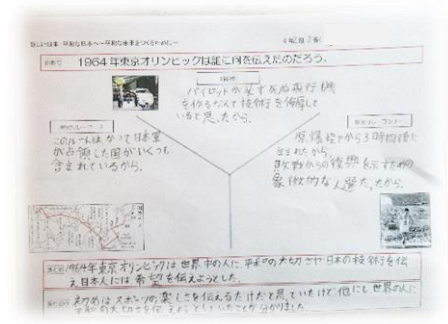 新しい日本、平和な日本へ〜平和な未来をつくるために〜
1964年東京オリンピックは誰に何を伝えたのだろう。
パイロットが必ず死ぬ飛行機
を作るなんて技術を侮辱して
いると思ったから。
このルートはかつて日本軍
が占領した国がいくつも
含まれているから。
原爆投下から3時間後に
生まれたから
敗戦からの復興を示すための
象徴的な人選だったから。
1964年東京オリンピックは世界中の人に平和の大切さや日本の技術を伝
え日本人には希望を伝えようとした。
初めはスポーツの楽しさを伝えるだけだと思っていたけど他にも世界の人に
平和の大切さを伝えようとしていたことが分かりました。